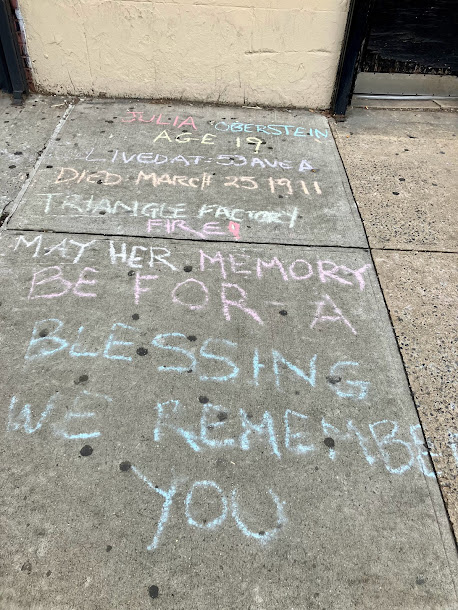 JULIA OBERSTEIN
AGE 19
LIVED AT: 53 AVE A
DIED: MARCH 25 1911
TRIANGLE FACTORY
FIRE!
MAY HER MEMORY
BE FOR A
BLESSING
WE REMEMBER
YOU